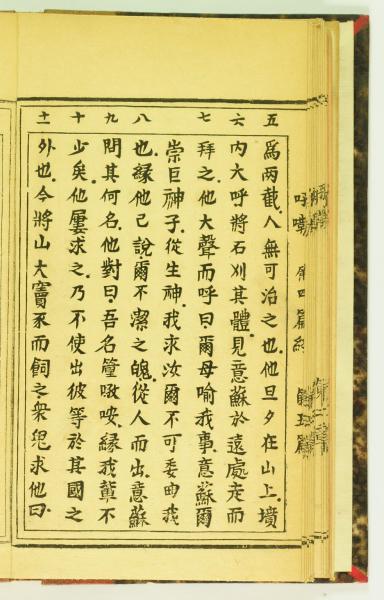 五 為兩截、人無可治之也、他旦夕在山上、墳
六 內大呼將石刈其體、見意蘇於遠處走而
七 拜之、他大聲而呼曰、爾母喻我事、意蘇爾
崇巨神子、從生神、我求汝爾不可委曲我
八 也、緣他已說爾不潔之魄、從人而出、意蘇
九 問其何名、他對曰、吾名 緣我輩不
十 少矣、他屢求之、乃不使出彼等於其國之
十一 外也、今將山大竇豕而飼之、衆鬼求他曰、